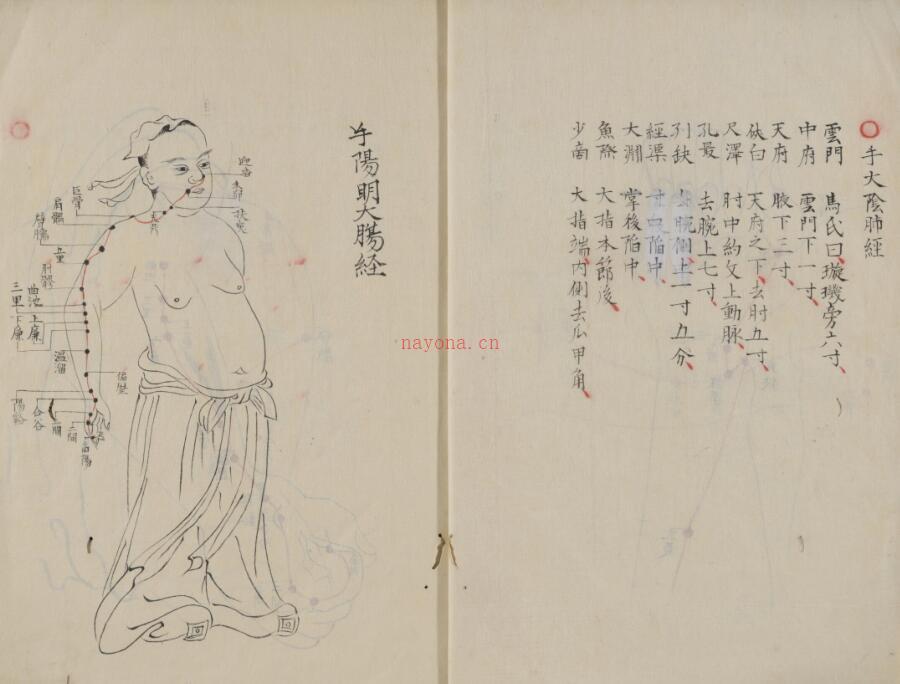 手大陰肺經
雲門 馬氏曰、璇璣旁六寸、
中府 雲門下一寸、
天府 腋下三寸、
俠白 天府之下、去肘五寸、
尺澤 肘中約文上動脉、
孔最 去腕上七寸、
列缺 腕側上一寸五分、
經渠 寸口陷中、
大淵 掌後陷中、
魚際 大指本節後、
少商 大指端内側去爪甲角、
手陽明大腸経
迎香
扶突
巨骨
肩髃
臂臑
肘髎
曲池
三里
上廉
下廉
温溜
陽谿
合谷
三間
二間
商陽
nayona.cn